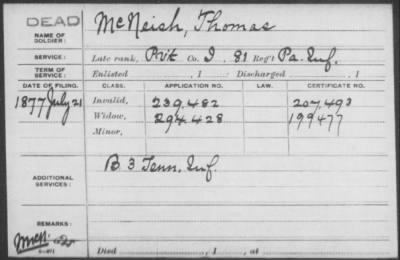 DEAD
NAME OF SOLDIER: McNeish, Thomas
SERVICE: Late rank, Pvt Co. I, 81 Reg't Pa. Inf.
TERM OF SERVICE: Enlisted , 1 Discharged , 1
DATE OF FILING. CLASS. APPLICATION NO. LAW. CERTIFICATE NO.
1877 July 21 Invalid, 239,482 207,493
Widow, 294,428 199477
Minor,
ADDITIONAL SERVICES: B. 3 Tenn. Inf.
REMARKS:
Died , 1 , at